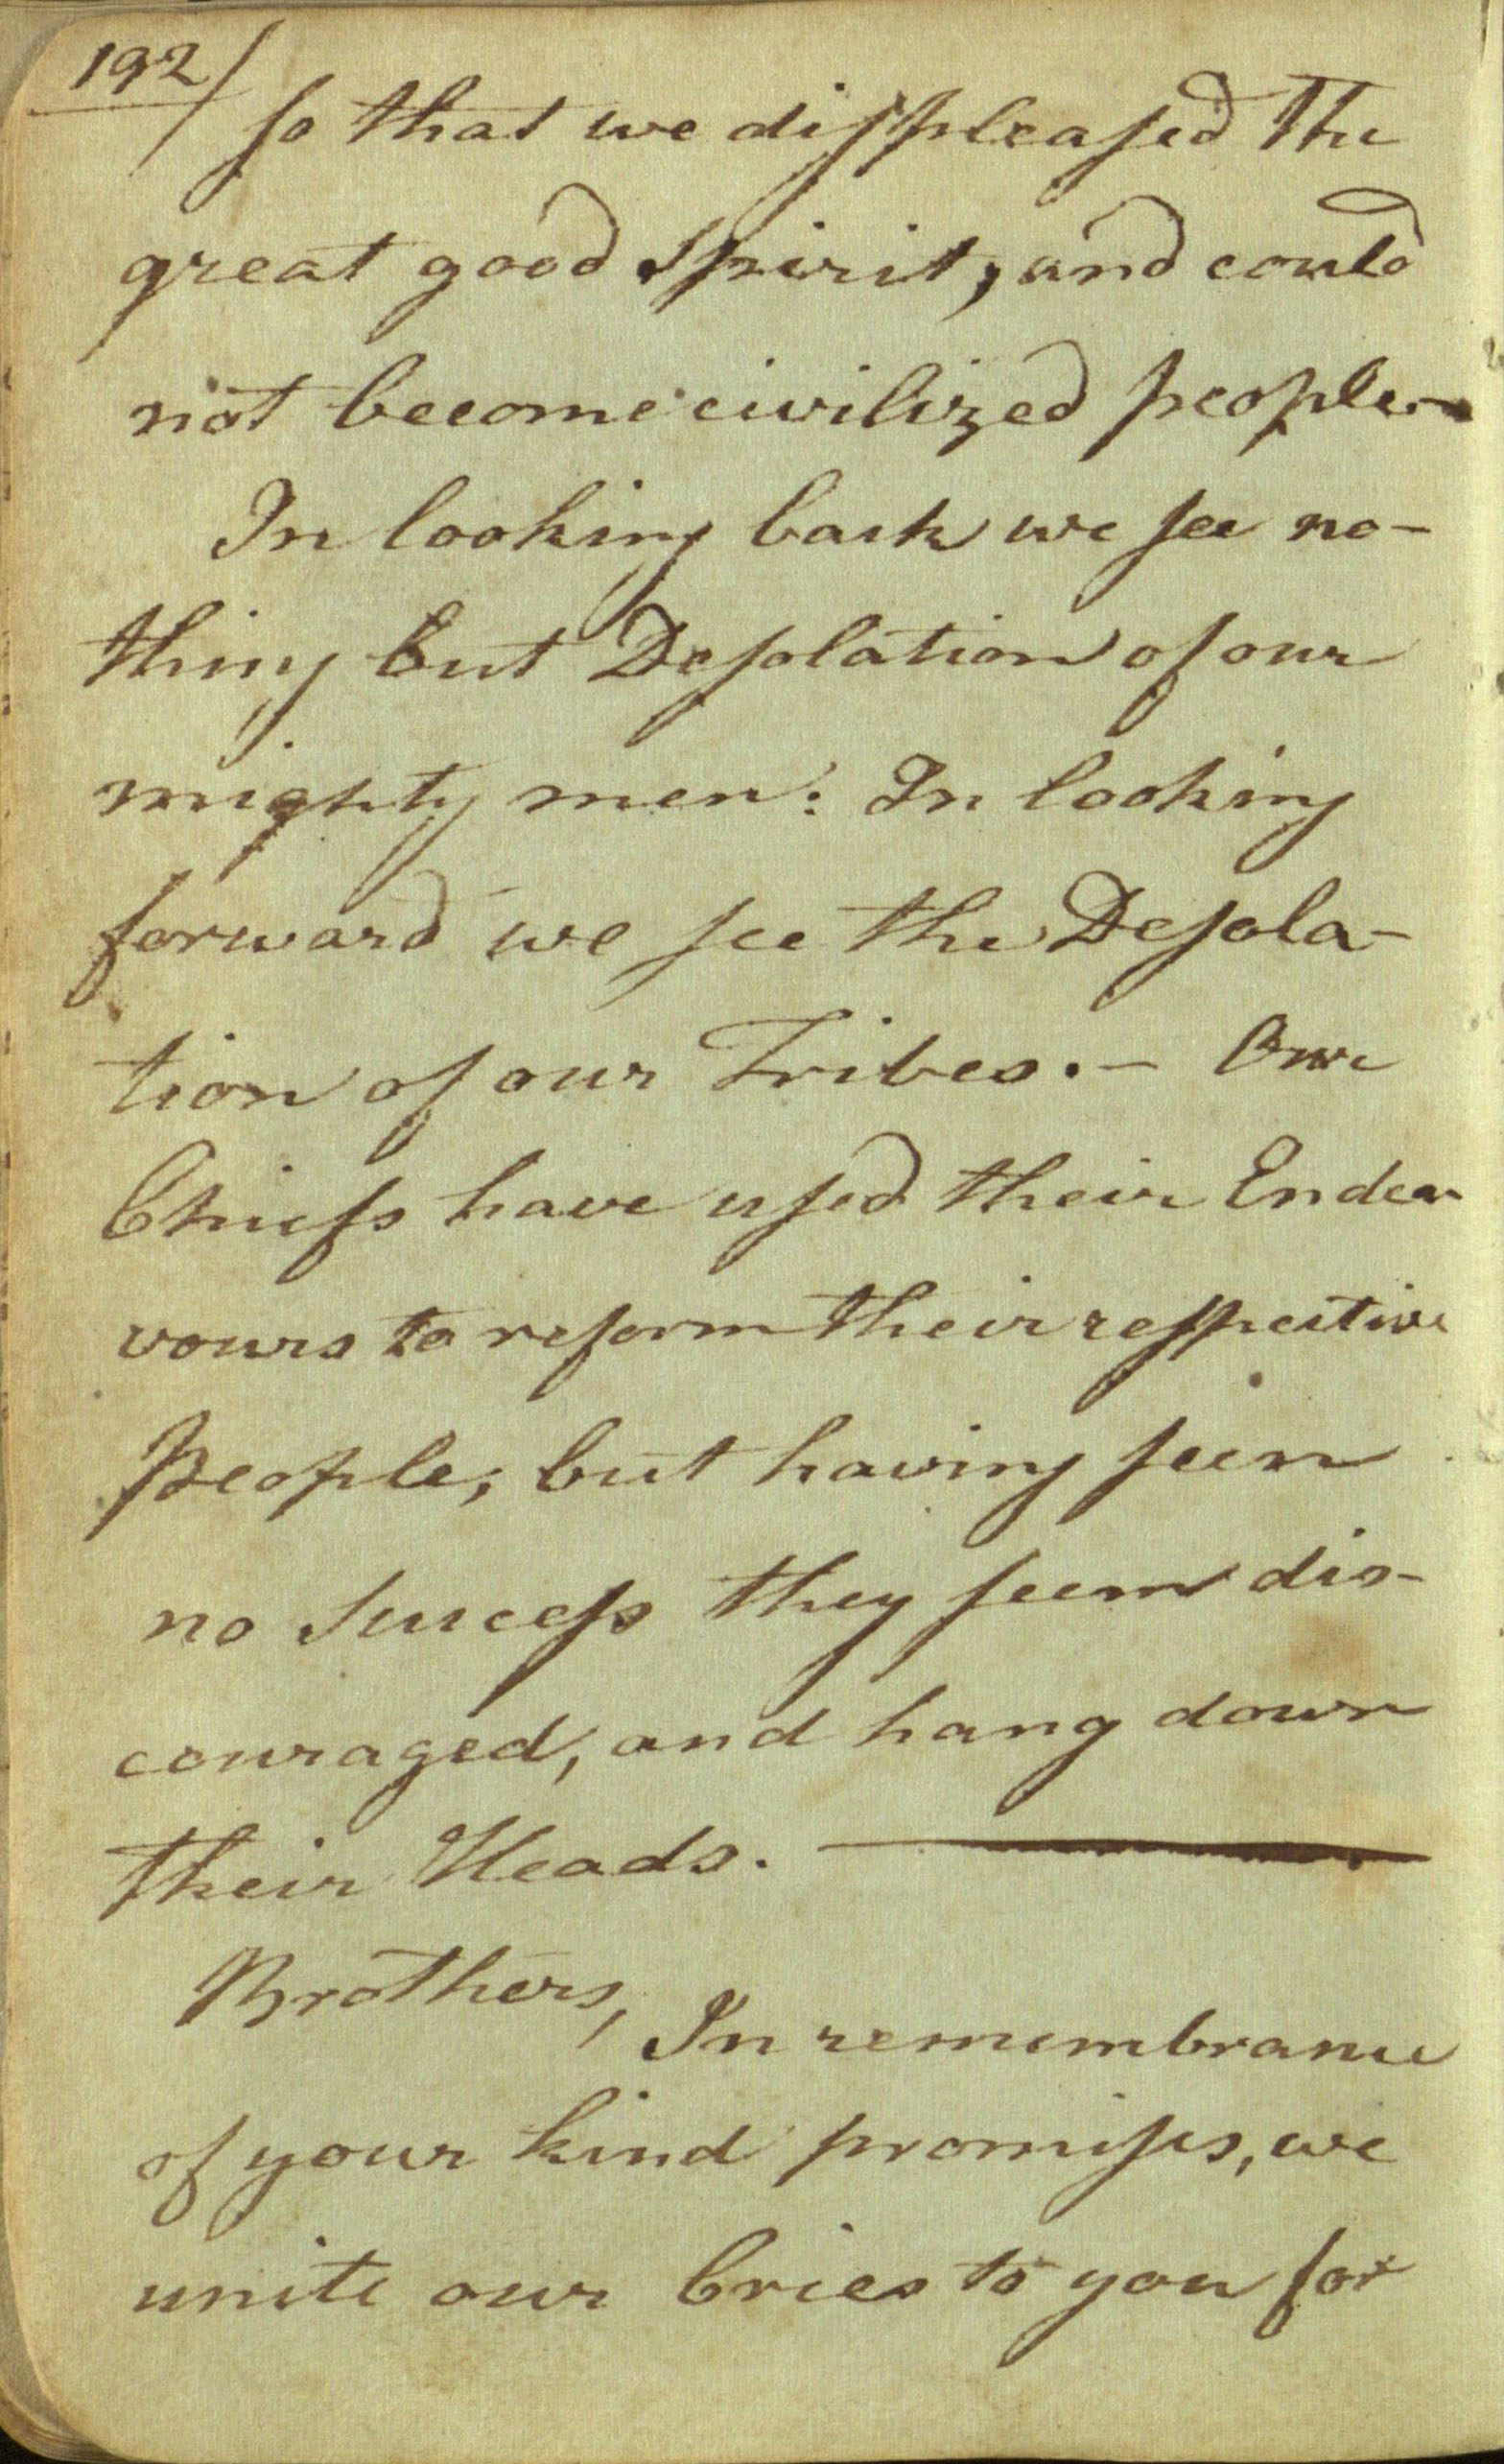 192
so that we displeased the
great good Spirit, and could
not become civilized people.—
In looking back we see no-
thing but Desolation of our
mighty men: In looking
forward we see the Desola-
tion of our Tribes.— Our
Chiefs have used their Endea-
vours to reform their respective
People, but having seen
no Success they seem dis-
couraged, and hang down
their Heads. —
Brothers,
In remembrance
of your kind promises, we
unite our Cries to you for